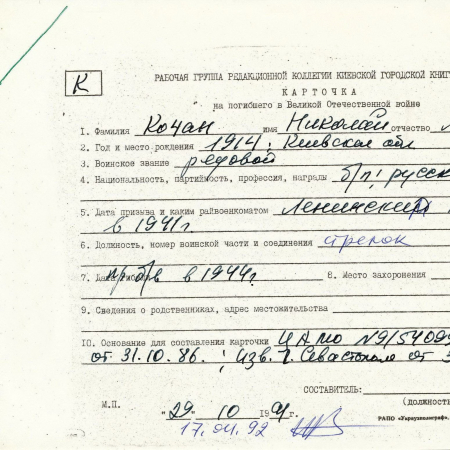 К
РАБОЧАЯ ГРУППА РЕДАКЦИОННОЙ КОЛЛЕГИИ КИЕВСКОЙ ГОРОДСКОЙ КНИГ
КАРТОЧКА
на погибшего в Великой Отечественной войне
1. Фамилия Кочан имя Николай отчество
2. Год и место рождения 1914г. Киевская обл
3. Воинское звание редовой
4. Национальность, партийность, профессия, награды б/п; русск
5. Дата призыва и каким райвоенкоматом Ленинский
в 1941г.
6. Должность, номер воинской части и соединения стрелок
7. Дата пр/б/в в 1944г. 8. Место захоронения
9. Сведения о родственниках, адрес местожительства
10. Основание для составления карточки ЦАМО №9/54099
от 31.10.86. ; изв. г. Севастополь от
СОСТАВИТЕЛЬ:
(должность
М.П. "29" 10 199 г.
РАПО «Укрвузполиграф».
17.04.92